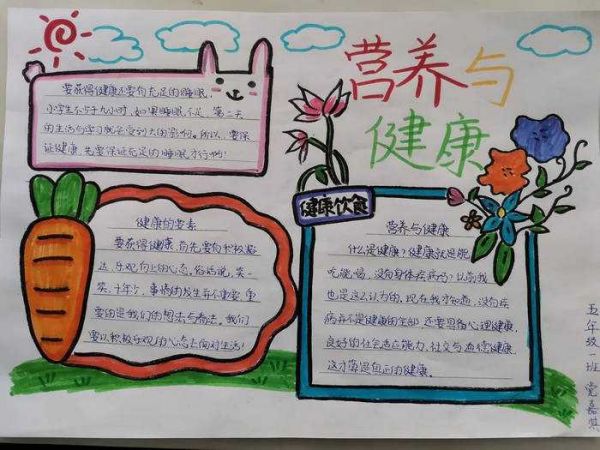 营养与
健康
要获得健康还要有充足的睡眠,
小学生不少于九小时,如果睡眠不足,第二天
的生活与学习就会受到大的影响。所以,要保
证健康,先要保证充足的睡眠才行哟!
健康的要素
要获得健康,首先要有积极
达、乐观向上的心态,俗话说,笑一
笑,十年少,事情的发生并不重要,重
要的是我们的想法与看法。我们
要以积极乐观的心态去面对生活!
健康饮食
营养与健康
什么是健康?健康就是能
吃能喝,没有身体疾病吗?以前我
也是这么认为的,现在我才知道,没有疾
病并不是健康的全部,还要具备心理健康,
良好的社会适应能力,社交与道德健康,
这才算是真正的健康。
五年级一班 党嘉